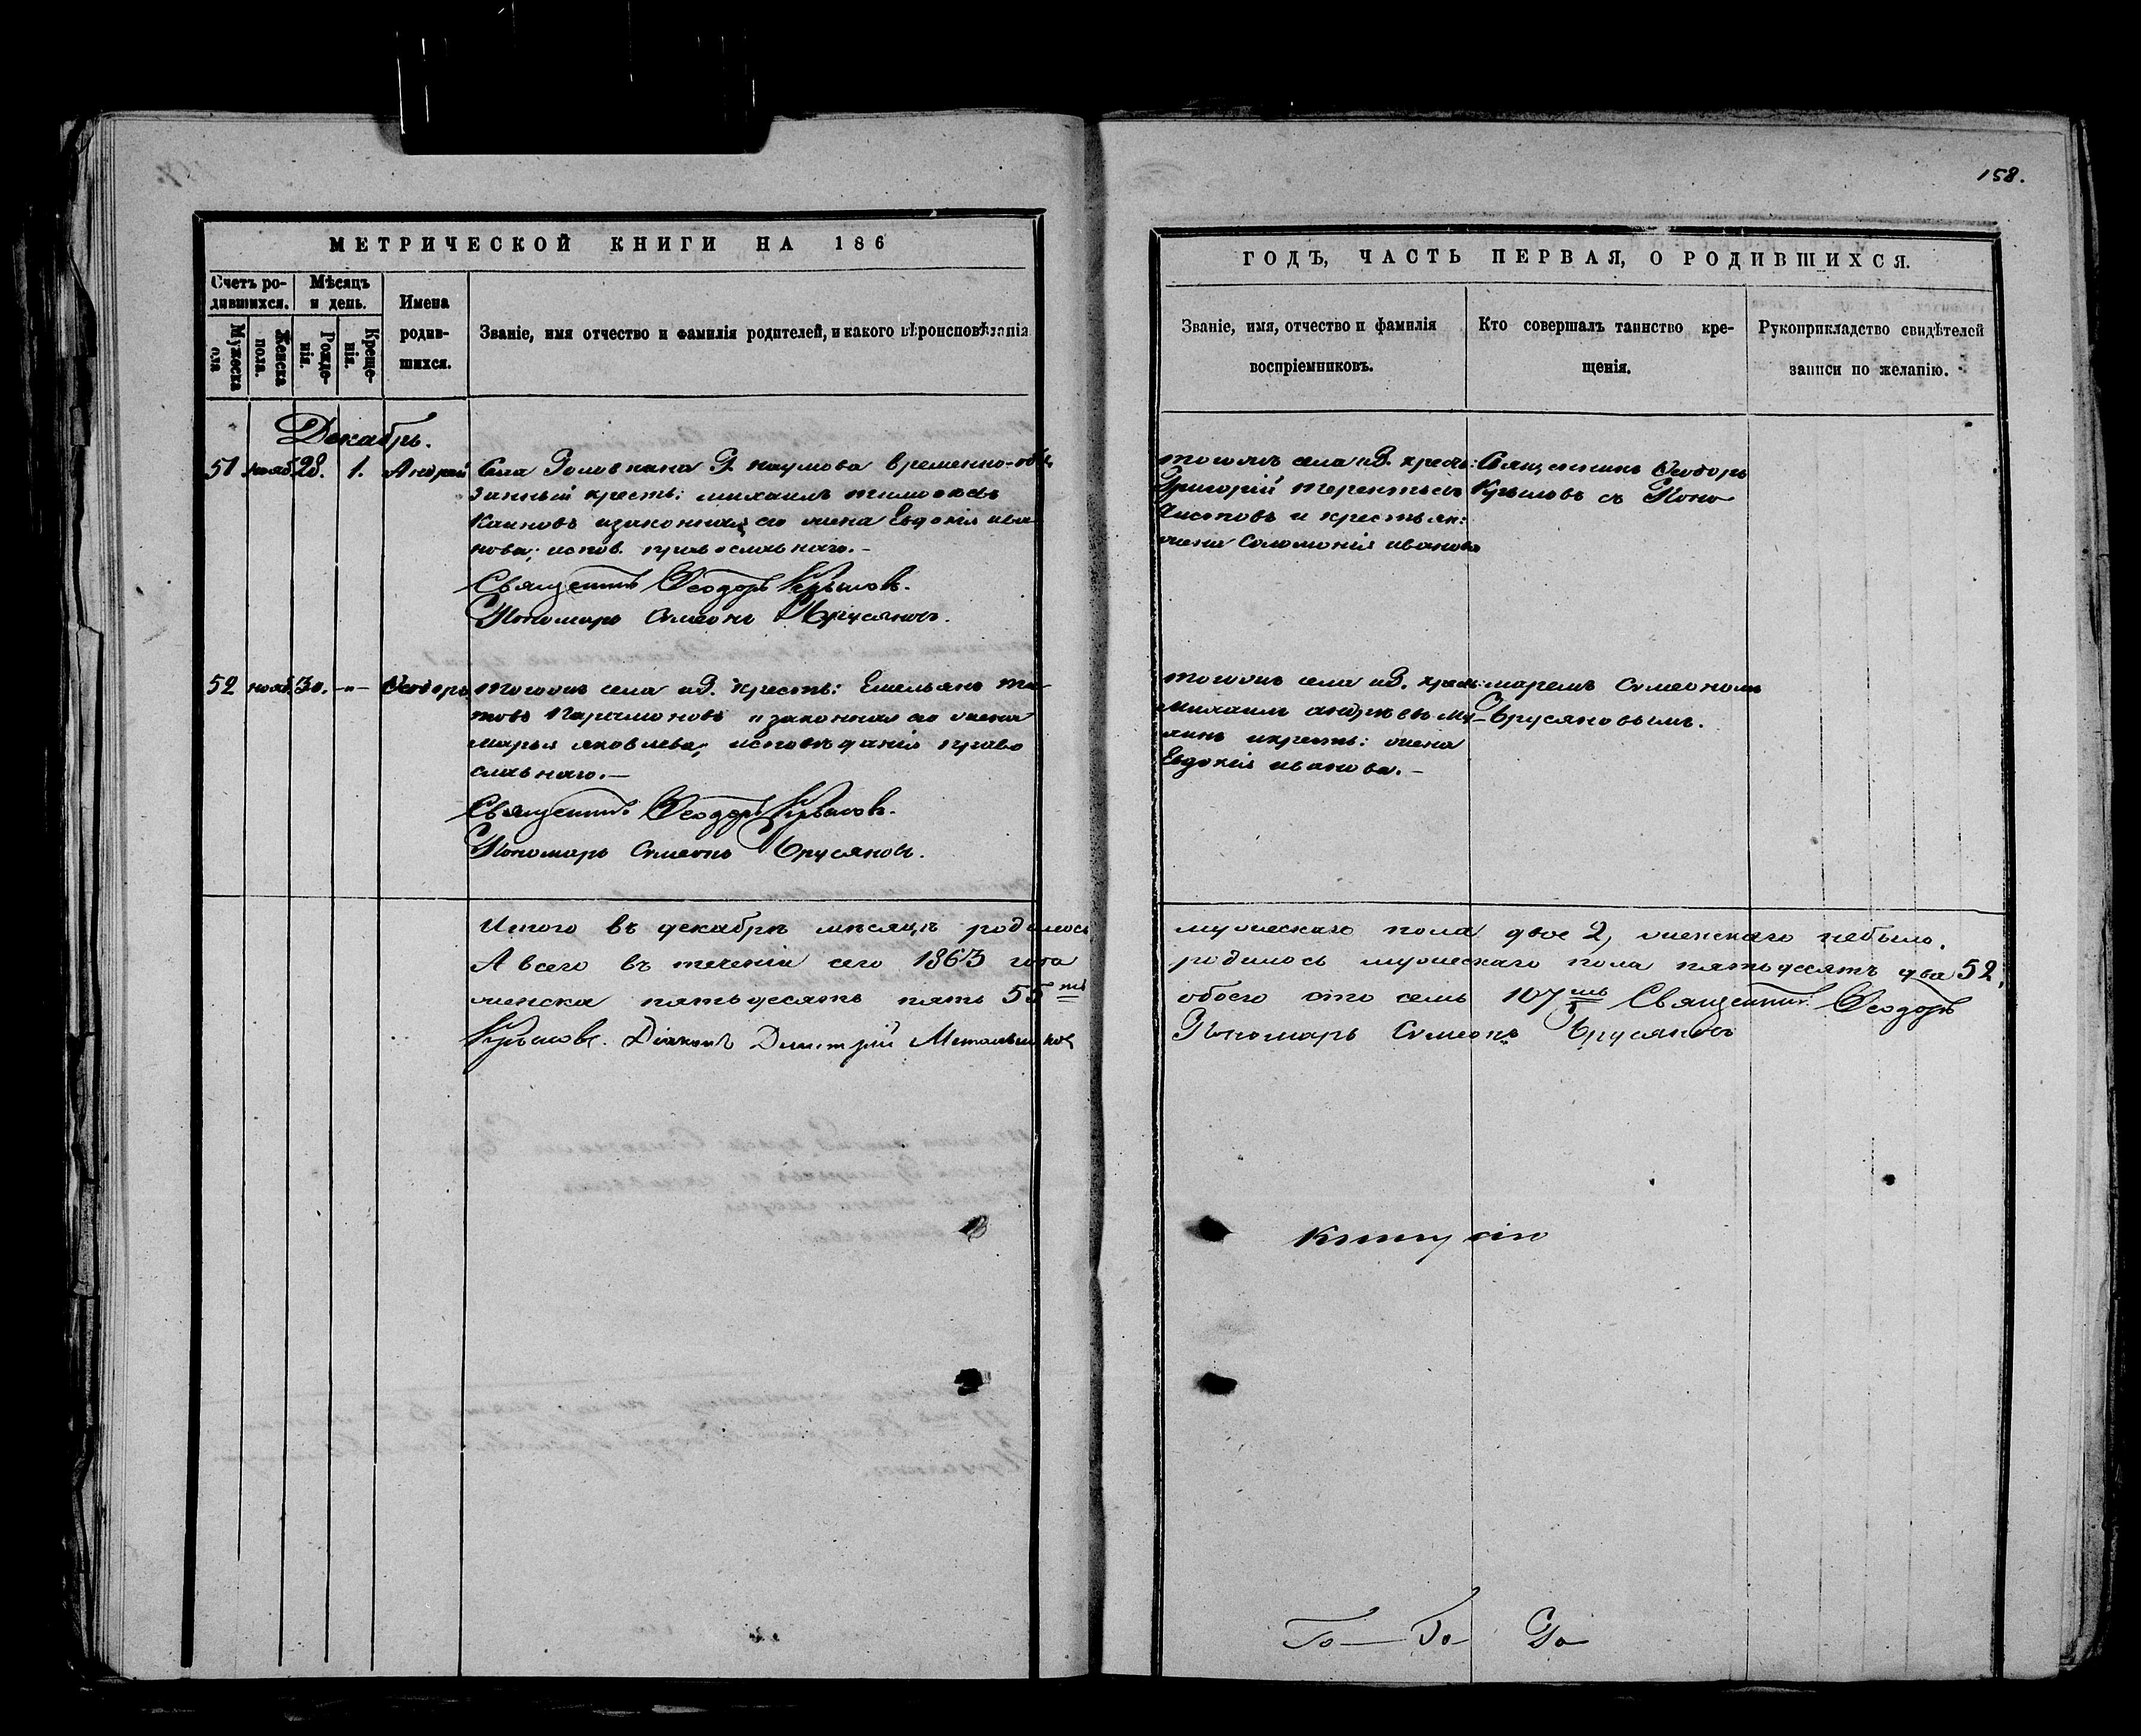 158.
МЕТРИЧЕСКОЙ КНИГИ НА 186
Счетъ ро-
дившихся.
Мѣсяцъ
и день.
Мужеска
пола
Женска
пола.
Рожде-
нія.
Креще-
нія.
Имена
родив-
шихся.
Званіе, имя отчество и фамилія родителей, и какого вѣроисповѣданія
Декабрь.
51 нояб. 28. 1. Андрей Села Головкина Г. Наумова временно-обя
занный кресть: михаилъ тимоѳеевъ
Каиновъ и законная его жена Евдокія ива
нова; испов. православнаго.-
Священникъ Ѳеодоръ Крыловъ.
Пономарь Симеонъ Брусяновъ.
52 нояб. 30. -"- Ѳеодоръ тогожъ села и Г. кресть: Емельянъ ти
товъ Парамоновъ и законная его жена
марья яковлева; исповѣданія право
славнаго.-
Священникъ Ѳеодоръ Крыловъ.
Пономарь Симеонъ Брусяновъ.
Итого въ декабрѣ мѣсяцѣ родилось
А всего въ теченіи сего 1863 года
женска пятьдесятъ пять 55ть
Крыловъ. Діаконъ Димитрій
ГОДЪ, ЧАСТЬ ПЕРВАЯ, О РОДИВШИХСЯ.
Званіе, имя, отчество и фамилія
воспріемниковъ.
Кто совершалъ таинство кре-
щенія.
Рукоприкладство свидѣтелей
записи по желанію.
тогожъ села и Г. кресть:
Григорій терентьевъ
Чистовъ и крестьян:
жена Соломонія иванова
Священникъ Ѳеодоръ
Крыловъ съ Поно
тогожъ села и Г. кресть:
михаилъ андреевъ
и кресть: жена
Евдокія иванова.-
маремъ Симеономъ
Брусяновымъ.
мужескаго пола двое 2, женскаго небыло.
родилось мужескаго пола пятьдесятъ два 52,
обоего сто семь 107мь Священникъ Ѳеодоръ
Пономарь Симеонъ Брусяновъ
Книгу сію